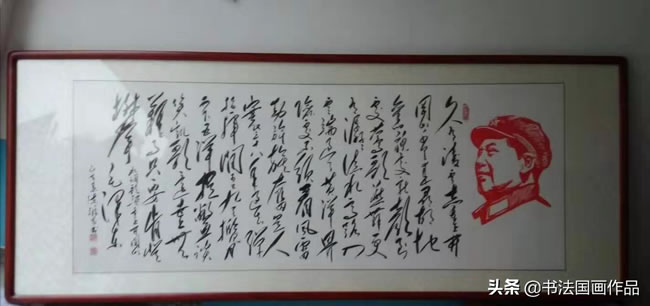 久有凌云志重上井
冈山千里来寻故地
旧貌变新颜到处
莺歌燕舞更
有潺潺流水高路入
云端过了黄洋界
险处不须看风雷
动旌旗奋是人
寰三十八年过去弹
指一挥间可上九天揽月
可下五洋捉鳖谈
笑凯歌还世上无
难事只要肯登
攀 毛泽东
头条 @书法国画作品